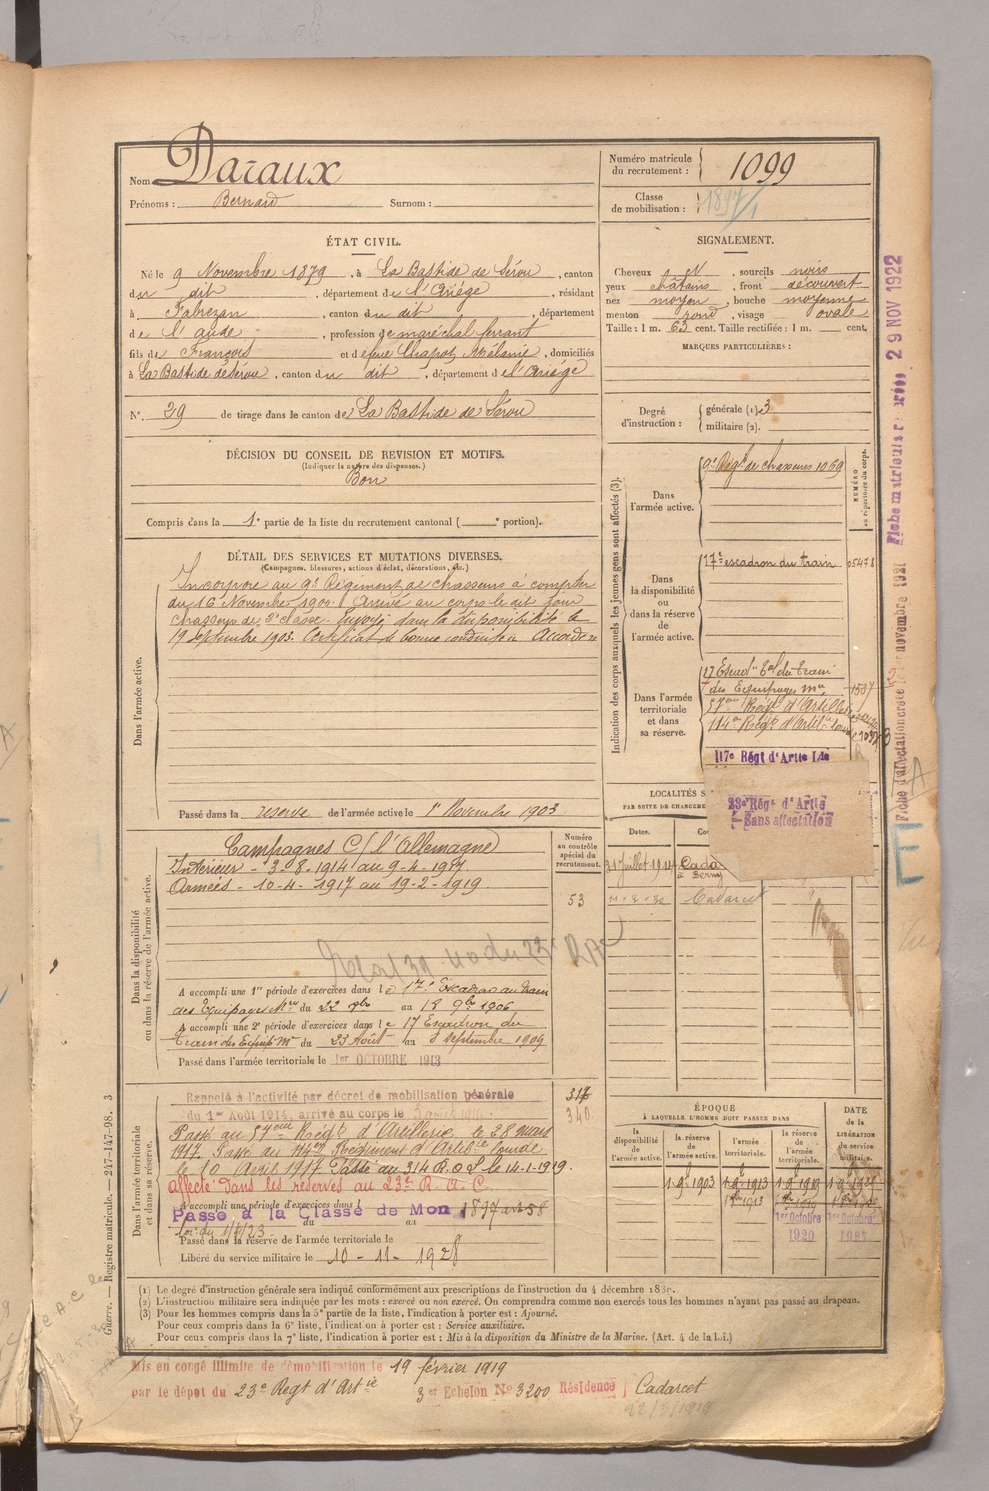 Nom Daraux
Prénoms : Bernard Surnom :
Numéro matricule du recrutement : 1099
Classe de mobilisation : 1897
ÉTAT CIVIL.
Né le 9 Novembre 1879, à La Bastide de Sérou, canton
du dit, département de l'Ariège, résidant
à Fabrezan, canton du dit, département
de l'aude, profession de maréchal ferrant
fils de François et de feue Chapot Mélanie, domiciliés
à La Bastide de Sérou, canton du dit, département de l'Ariège
N° 29 de tirage dans le canton de La Bastide de Sérou
SIGNALEMENT.
Cheveux N, sourcils noirs
yeux châtains, front découvert
nez moyen, bouche moyenne
menton rond, visage ovale
Taille : 1 m. 63 cent. Taille rectifiée : 1 m. cent.
MARQUES PARTICULIÈRES :
Degré d'instruction : générale (1) 3
militaire (2).
DÉCISION DU CONSEIL DE REVISION ET MOTIFS.
(Indiquer la nature des dispenses.)
Bon
Compris dans la 1e partie de la liste du recrutement cantonal ( e portion).
DÉTAIL DES SERVICES ET MUTATIONS DIVERSES.
(Campagnes, blessures, actions d'éclat, décorations, etc.)
Dans l'armée active.
Incorporé au 9e Régiment de chasseurs à compter
du 16 Novembre 1900. Arrivé au corps le dit jour
chasseur de 2e classe. Envoyé dans la disponibilité le
19 Septembre 1903. Certificat de bonne conduite Accordé
Passé dans la réserve de l'armée active le 1er Novembre 1903
Indication des corps auxquels les jeunes gens sont affectés (3).
NUMÉRO au répertoire du corps.
Dans l'armée active.
9e Régt de chasseurs 1069
Dans la disponibilité ou dans la réserve de l'armée active.
17e escadron du train 05478
Dans l'armée territoriale et dans sa réserve.
17 Escadn Tal du train
des Equipages Mres 1537
57eme Régt d'Artillerie
114e Régt d'Artie lourde
117e Régt d'Artie Lde
23e Régt d'Artie
Sans affectation
LOCALITÉS S
PAR SUITE DE CHANGEME
Dates.
31 Juillet 1914 Cada
Cadarcet
Dans la disponibilité ou dans la réserve de l'armée active.
Campagnes C/ l'Allemagne
Intérieur - 3-8-1914 au 9-4-1917.
Armées - 10-4-1917 au 19-2-1919.
Numéro au contrôle spécial du recrutement.
53
A accompli une 1re période d'exercices dans le 17e Escadron du train
des Equipages Mres du 22 8bre au 18 9bre 1906
A accompli une 2e période d'exercices dans le 17 Escadron du
train des Equip. Mres du 23 Août au 8 septembre 1909
Passé dans l'armée territoriale le 1er OCTOBRE 1913
Dans l'armée territoriale et dans sa réserve.
Rappelé à l'activité par décret de mobilisation générale
du 1er Août 1914, arrivé au corps le
317
340
Passé au 57eme Régt d'Artillerie le 28 mars
1917. Passé au 114e Régiment d'Artie lourde
le 10 Avril 1917 Passé au 314 R.A.L le 14-1-1919.
affecté dans les réserves au 23e R. A. C.
A accompli une période d'exercices dans l
Passé à la Classe de Mon 1897 art 58
du au
loi du 1/4/23.
Passé dans la réserve de l'armée territoriale le
Libéré du service militaire le 10-11-1928
ÉPOQUE
À LAQUELLE L'HOMME DOIT PASSER DANS
la disponibilité de l'armée active.
la réserve de l'armée active.
l'armée territoriale.
la réserve de l'armée territoriale.
DATE de la LIBÉRATION du service militaire.
1-9bre 1903
1er Octobre 1920
(1) Le degré d'instruction générale sera indiqué conformément aux prescriptions de l'instruction du 4 décembre 1889.
(2) L'instruction militaire sera indiquée par les mots : exercé ou non exercé. On comprendra comme non exercés tous les hommes n'ayant pas passé au drapeau.
(3) Pour les hommes compris dans la 5e partie de la liste, l'indication à porter est : Ajourné.
Pour ceux compris dans la 6e liste, l'indication à porter est : Service auxiliaire.
Pour ceux compris dans la 7e liste, l'indication à porter est : Mis à la disposition du Ministre de la Marine. (Art. 4 de la Loi.)
Mis en congé illimité de démobilisation le 19 février 1919
par le dépot du 23e Regt d'Artie 3er Echelon No 3200 Résidence Cadarcet
22/3/1919
Guerre. — Registre matricule. — 247-147-98. 3
29 NOV 1922
novembre 1921